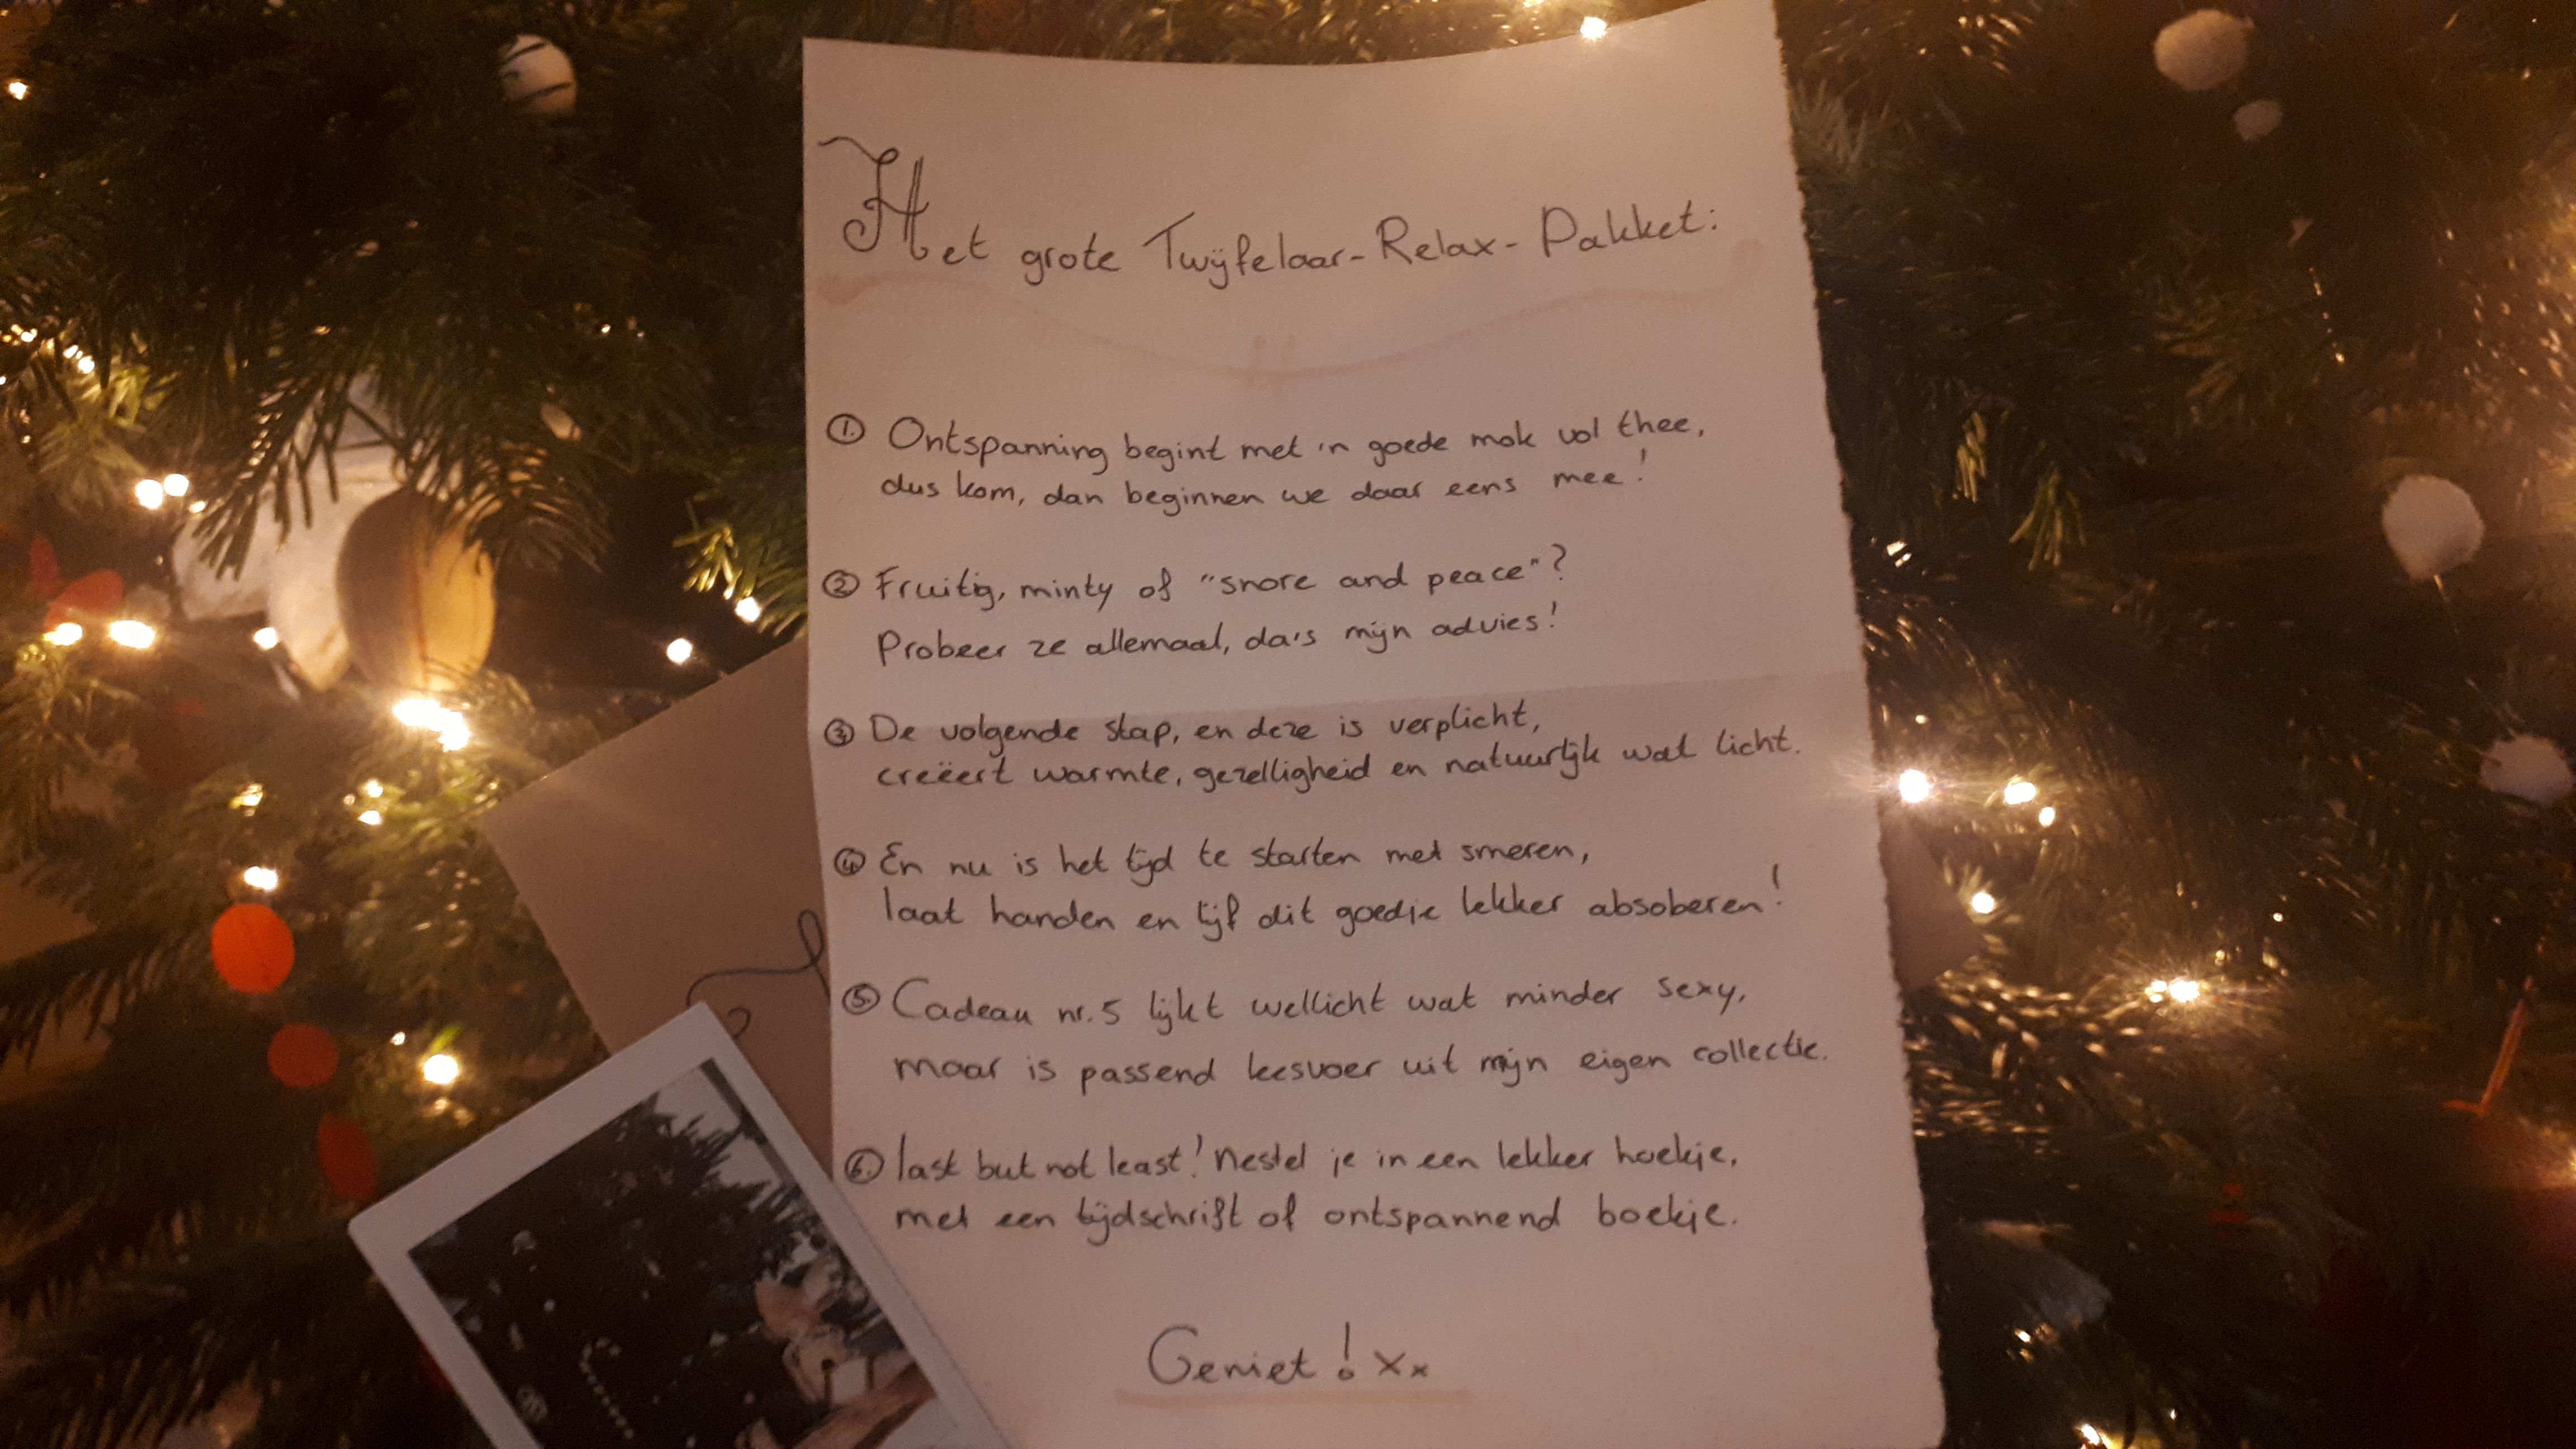 Het grote Twijfelaar-Relax-Pakket:
1. Ontspanning begint met 'n goede mok vol thee,
dus kom, dan beginnen we daar eens mee!
2. Fruitig, minty of "snore and peace"?
Probeer ze allemaal, da's mijn advies!
3. De volgende stap, en deze is verplicht,
creëert warmte, gezelligheid en natuurlijk wat licht.
4. En nu is het tijd te starten met smeren,
laat handen en lijf dit goedje lekker absoberen!
5. Cadeau nr. 5 lijkt wellicht wat minder sexy,
maar is passend leesvoer uit mijn eigen collectie.
6. last but not least! Nestel je in een lekker hoekje,
met een tijdschrift of ontspannend boekje.
Geniet! xx